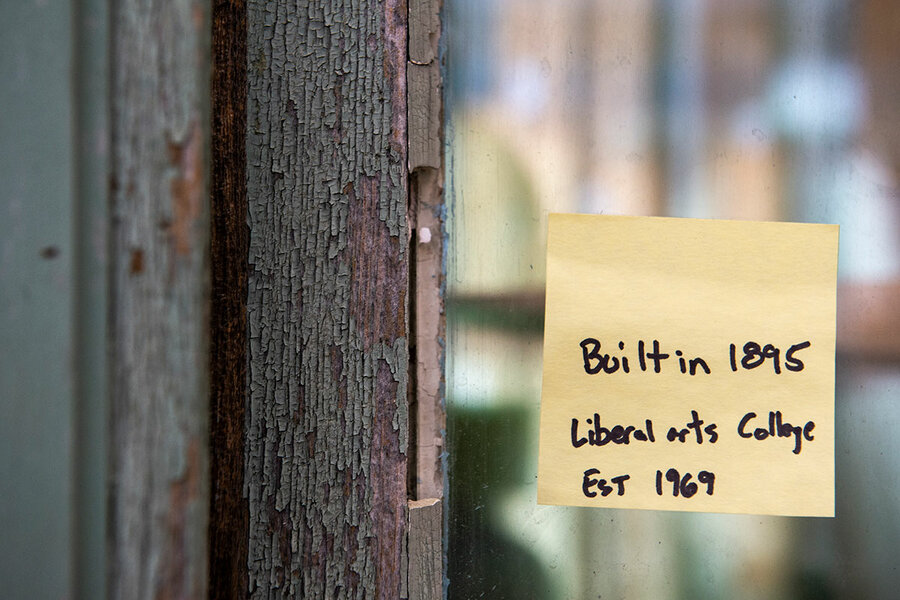 Built in 1895
Liberal arts College
EST 1969